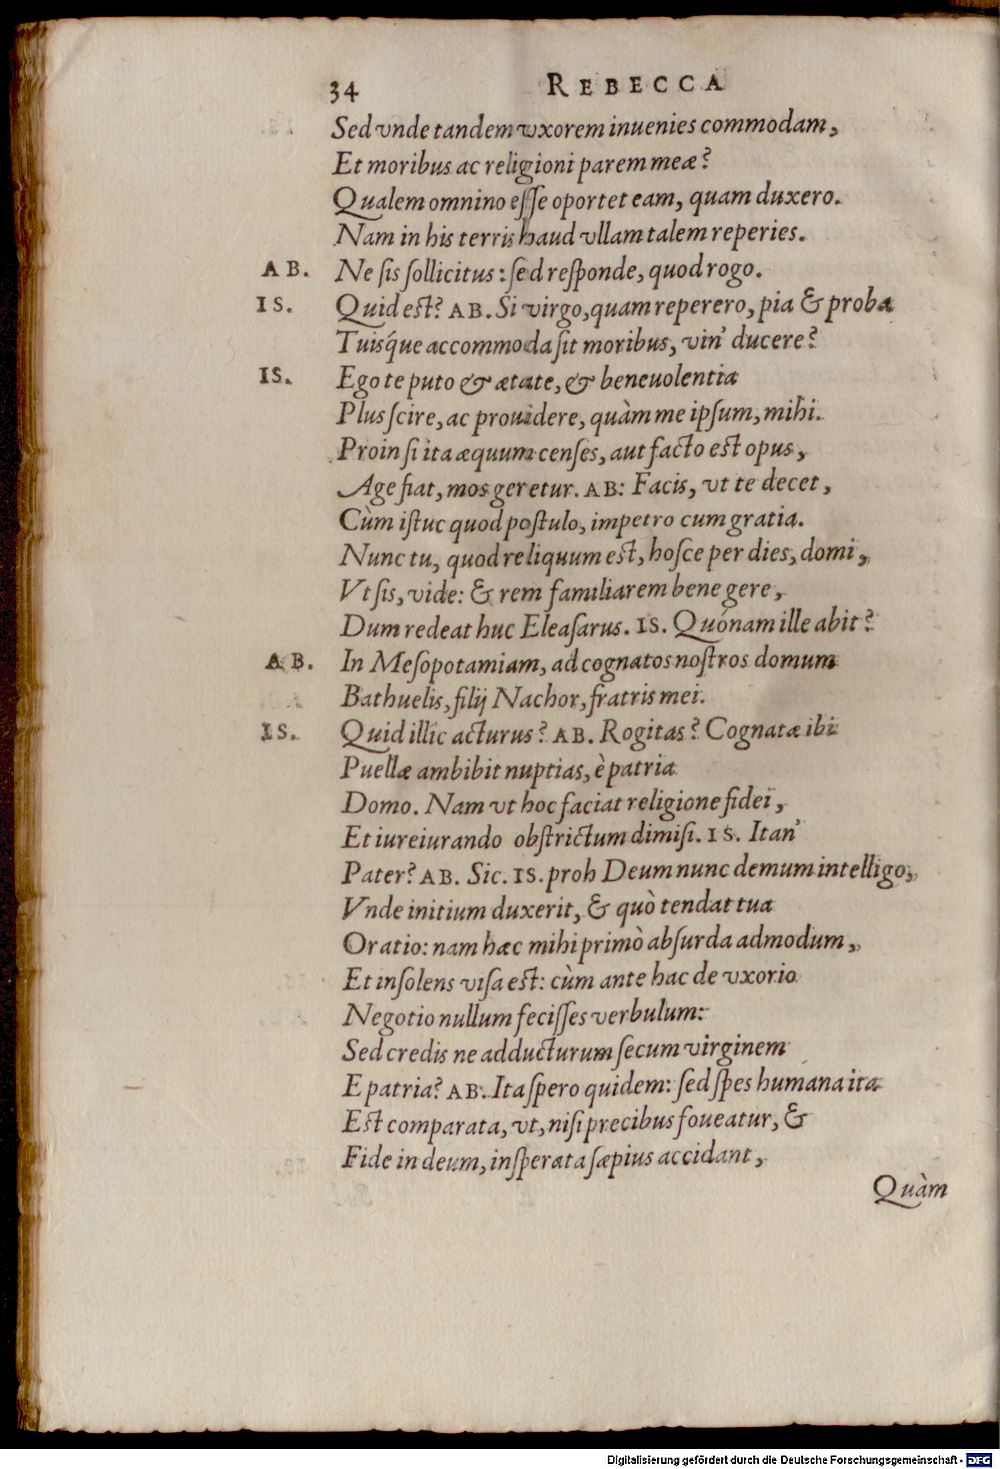 34 REBECCA
Sed vnde tandem vxorem inuenies commodam,
Et moribus ac religioni parem meæ?
Qualem omnino eſſe oportet eam, quam duxero.
Nam in his terris haud vllam talem reperies.
AB. Ne ſis ſollicitus: ſed reſponde, quod rogo.
IS. Quid eſt? AB. Si virgo, quam reperero, pia & proba
Tuisq́ue accommoda ſit moribus, vin' ducere?
IS. Ego te puto & ætate, & beneuolentia
Plus ſcire, ac prouidere, quàm me ipſum, mihi.
Proin ſi ita æquum cenſes, aut facto eſt opus,
Age fiat, mos geretur. AB: Facis, vt te decet,
Cùm iſtuc quod poſtulo, impetro cum gratia.
Nunc tu, quod reliquum eſt, hoſce per dies, domi,
Vt ſis, vide: & rem familiarem bene gere,
Dum redeat huc Eleaſarus. IS. Quónam ille abit?
AB. In Meſopotamiam, ad cognatos noſtros domum
Bathuelis, filij Nachor, fratris mei.
IS. Quid illîc acturus? AB. Rogitas? Cognatæ ibi
Puellæ ambibit nuptias, è patria
Domo. Nam vt hoc faciat religione fidei,
Et iureiurando obſtrictum dimiſi. IS. Itan'
Pater? AB. Sic. IS. proh Deum nunc demum intelligo,
Vnde initium duxerit, & quò tendat tua
Oratio: nam hæc mihi primò abſurda admodum,
Et inſolens viſa eſt: cùm ante hac de vxorio
Negotio nullum feciſſes verbulum:
Sed credis ne adducturum ſecum virginem
E patria? AB. Ita ſpero quidem: ſed ſpes humana ita
Eſt comparata, vt, niſi precibus foueatur, &
Fide in deum, inſperata ſæpius accidant,
Quàm
Digitalisierung gefördert durch die Deutsche Forschungsgemeinschaft - DFG